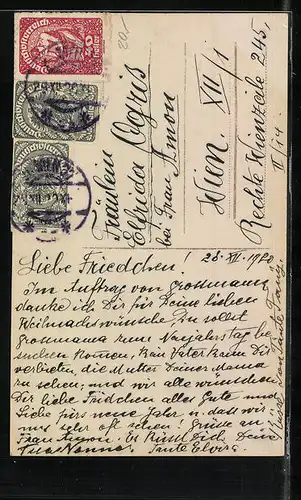 20.-
Deutschösterreich
Deutschösterreich
Deutschösterreich
WIEN
Fräulein
Elfrida Negris
bei Frau Amon
Wien. XII/1
Rechte Wienzeile 245,
II/14.
28. XII. 1920
Liebe Friedchen!
Im Auftrag von Grossmama
danke ich Dir für Deine lieben
Weihnachtswünsche, Du sollst
Grossmama zum Neujahrstag be-
suchen kommen, kein Vater kann Dir
verbieten, die Mutter Deiner Mama
zu sehen; und wir alle wünschen
Dir liebe Fridchen alles Gute und
Liebe fürs neue Jahr u. dass wir
uns sehr oft sehen! Grüsse an
Frau Amon. Es küsst Dich Deine
Tante Elvira.